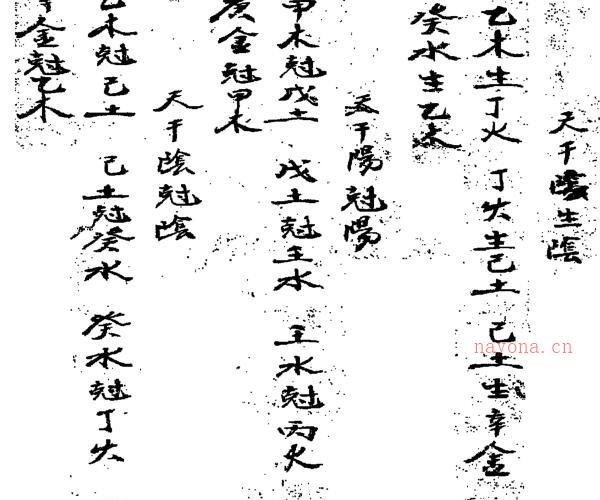 天干陰生陰
乙木生丁火 丁火生己土 己土生辛金
癸水生乙木
天干陽尅陽
甲木尅戊土 戊土尅壬水 壬水尅丙火
庚金尅甲木
天干陰尅陰
乙木尅己土 己土尅癸水 癸水尅丁火
金尅乙木
nayona.cn